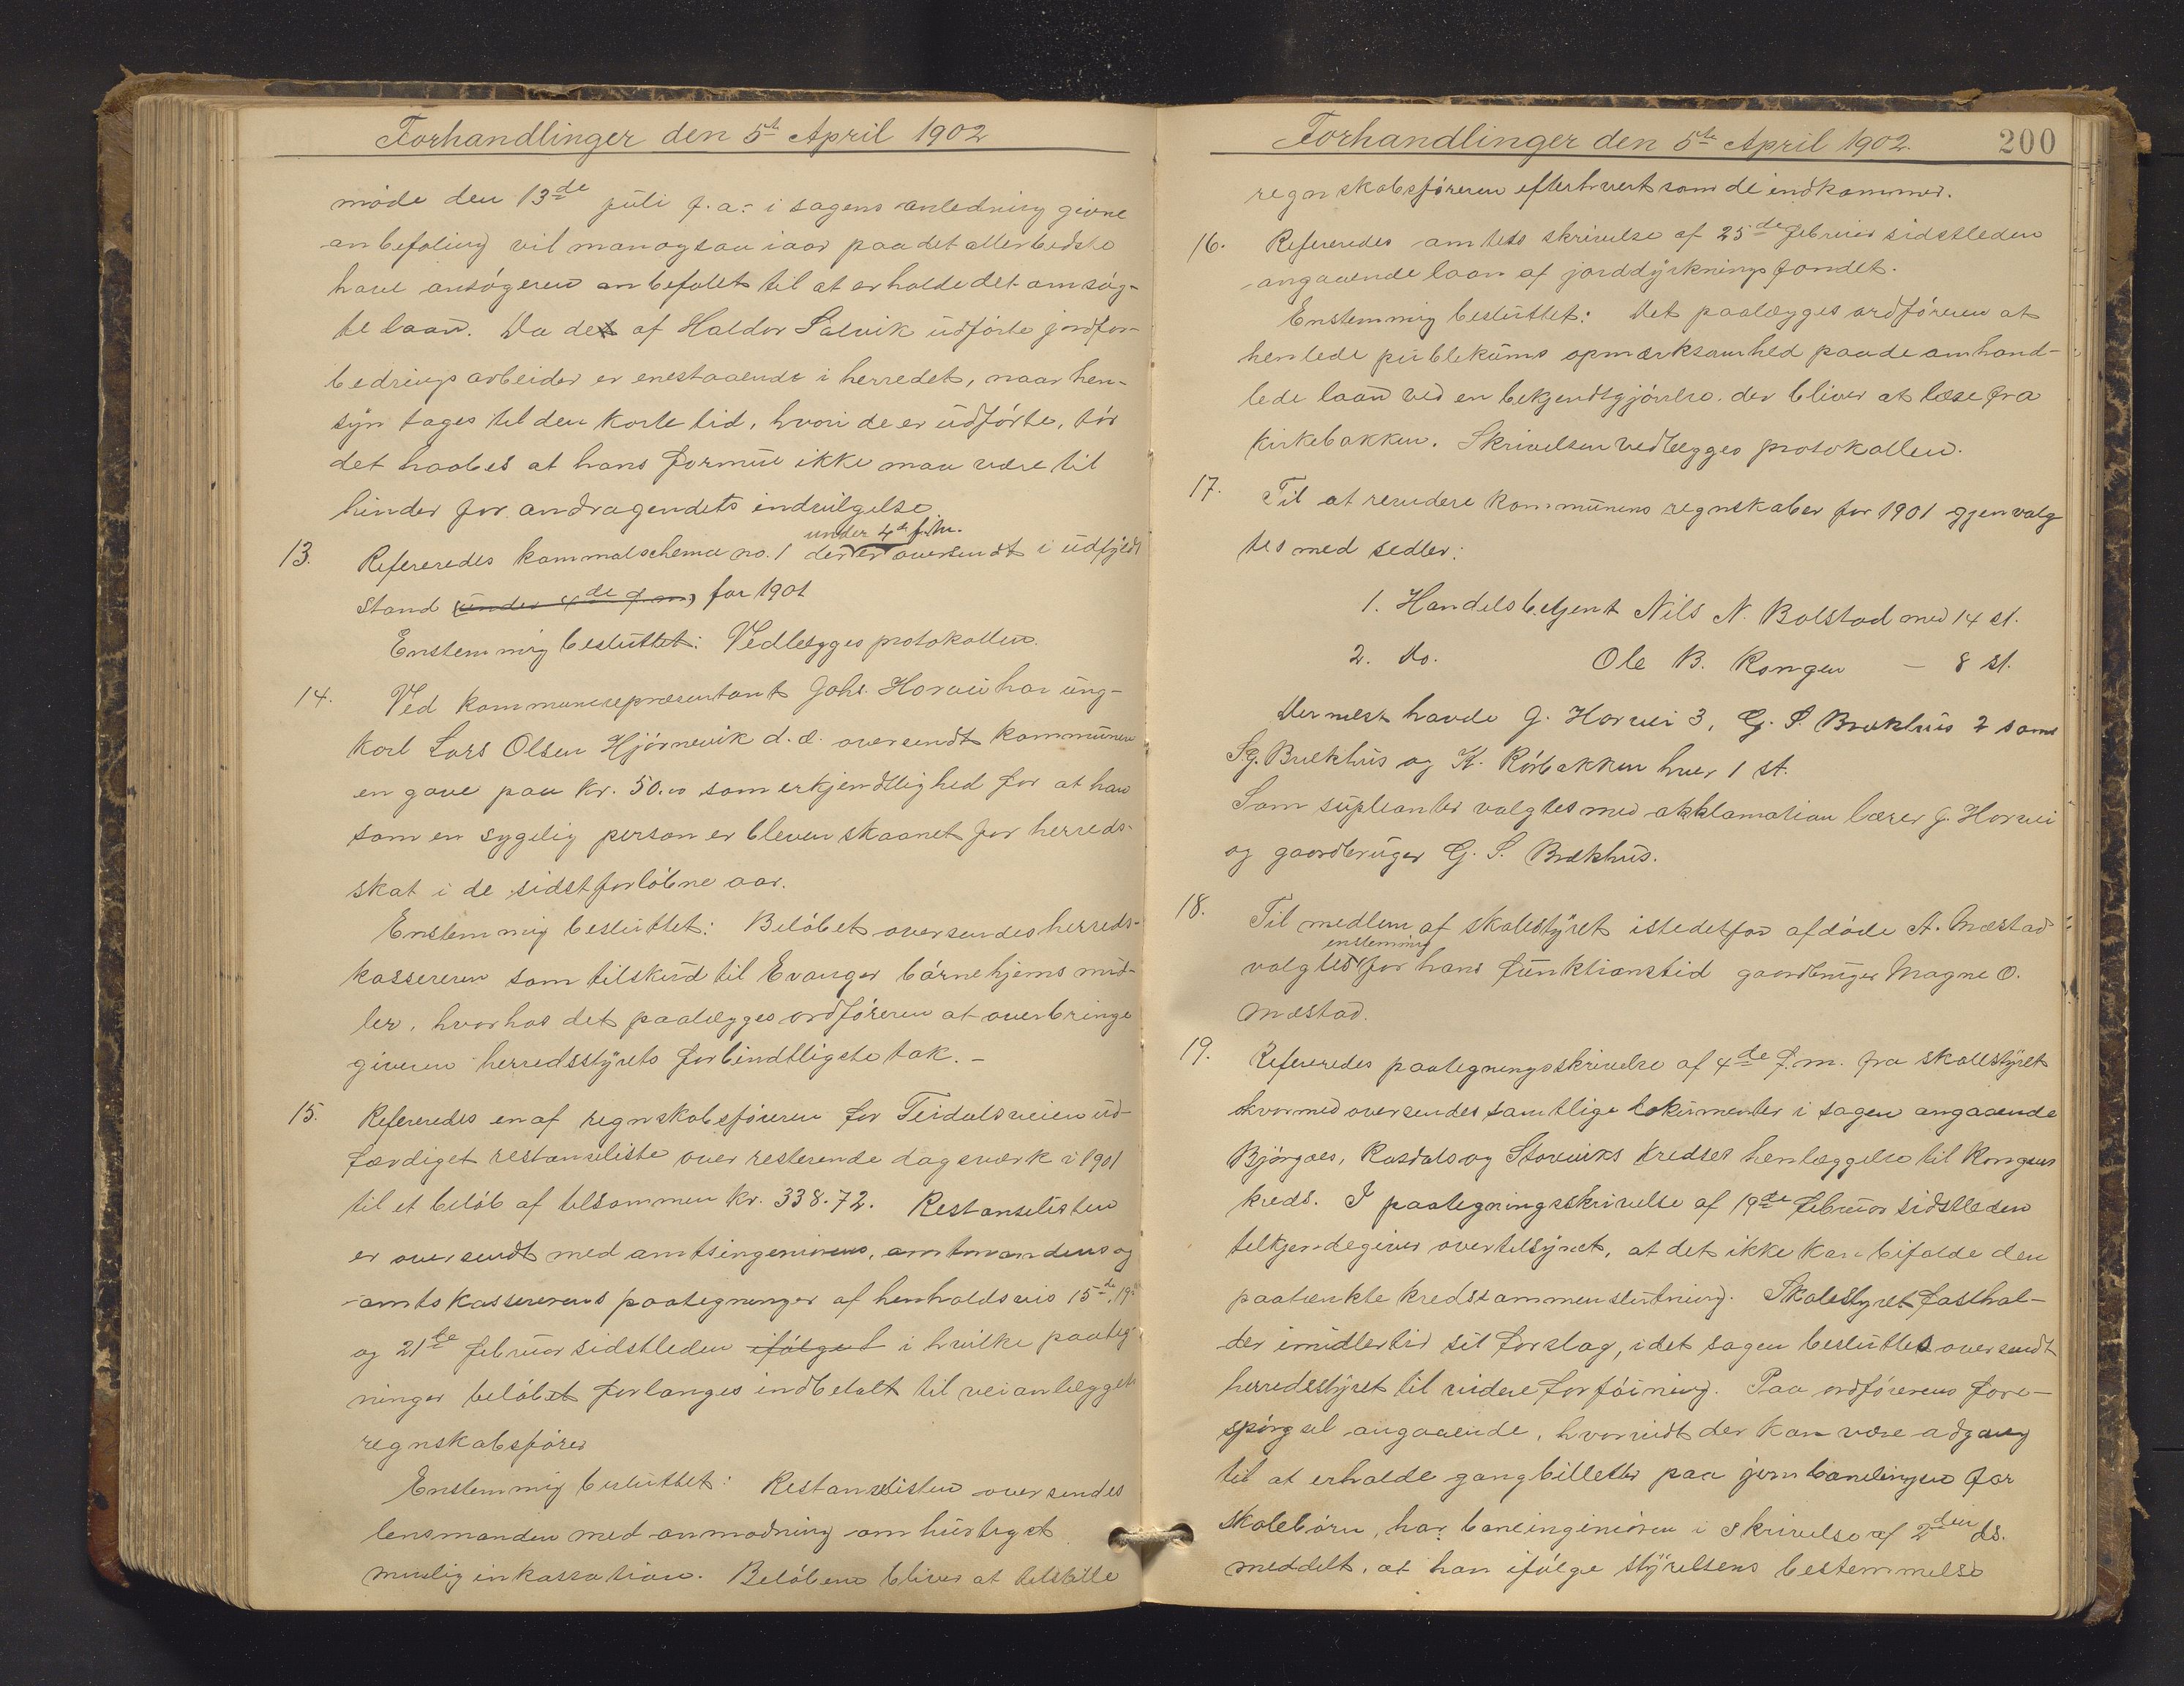 Forhandlinger den 5te April 1902
møde den 13de juli f.a. i sagens anledning givne
anbefaling vil man ogsaa iaar paa det allerbedste
have ansøgeren anbefalet til at erholde det omsøg-
te laan. Da de af Haldor Salvik udførte jordfor-
bedringsarbeider er enestaaende i herredet, naar hen-
syn tages til den korte tid, hvori de er udførte, tør
det haabes at hans formue ikke maa være til
hinder for andragendets indvilgelse.
under 4de f.m.
13. Refereredes kommalschema no. 1 der er oversendt i udfyldt
stand (under 4de f.m.) for 1901
Enstemmig besluttet: Vedlægges protokollen.
14. Ved kommunerepræsentant Johs. Horvei har ung-
karl Lars Olsen Hjørnevik d.æ. oversendt kommunen
en gave paa kr. 50.00 som erkjendtlighed for at han
som en sygelig person er bleven skaanet for herreds-
skat i de sidstforløbne aar.
Enstemmig besluttet: Beløbet oversendes herreds-
kassereren som tilskud til Evanger børnehjems mid-
ler, hvorhos det paalægges ordføreren at overbringe
giveren herredsstyrets forbindtligste tak. –
15. Refereredes en af regnskabsføreren for Teidalsveien ud-
færdiget restanseliste over resterende dagsværk i 1901
til et beløb af tilsammen kr. 338.72. Restanselisten
er oversendt med amtsingeniørens, amtmandens og
amtskassererens paategninger af henholdsvis 15de, 19de
og 21de februar sidstleden ifølget i hvilke paateg-
ninger beløbet forlanges indbetalt til veianlæggets
regnskabsfører
Enstemmig besluttet: Restanselisten oversendes
lensmanden med anmodning om hurtigst
mulig inkassation. Beløbene bliver at tilstille
Forhandlinger den 5te April 1902. 200
regnskabsføreren efterhvert som de indkommer.
16. Refereredes amtets skrivelse af 25de februar sidstleden
angaaende laan af jorddyrkningsfondet.
Enstemmig besluttet: Det paalægges ordføreren at
henlede publikums opmærksomhed paa de omhand-
lede laan ved en bekjendtgjørelse der bliver at læse fra
kirkebakken. Skrivelsen vedlægges protokollen.
17. Til at revidere kommunens regnskaber for 1901 gjenvalg
tes med sedler:
1. Handelsbetjent Nils N. Bolstad med 14 st.
2. Do. Ole B. Kongen – 8 st.
Dernæst havde J. Horvei 3, G. S. Brækhus 2 samt
Sg. Brækhus og K. Rørbakken hver 1 st.
Som supleanter valgtes med akklamation lærer J. Horvei
og gaardbruger G. S. Brækhus.
18. Til medlem af skolestyret istedetfor afdøde A. Mæstad
enstemmig
valgtes for hans funktionstid gaardbruger Magne O.
Mæstad.
19. Refereredes paategningsskrivelse af 4de f.m. fra skolestyret
hvormed oversendes samtlige dokumenter i sagen angaaende
Bjørgaes, Rasdals og Storviks kredses henlæggelse til Kongens
kreds. I paategningsskrivelse af 19de februar sidstleden
tilkjendegiver overtilsynet, at det ikke kan bifalde den
paatænkte kredssammenslutning. Skolestyret fasthol-
der imidlertid sit forslag, idet sagen besluttes oversendt
herredsstyret til videre forføining. Paa ordførerens fore-
spørgsel angaaende, hvorvidt der kan være adgang
til at erholde gangbilletter paa jernbanelinjen for
skolebørn, har baneingeniøren i skrivelse af 2den ds.
meddelt, at han ifølge styrelsens bestemmelse